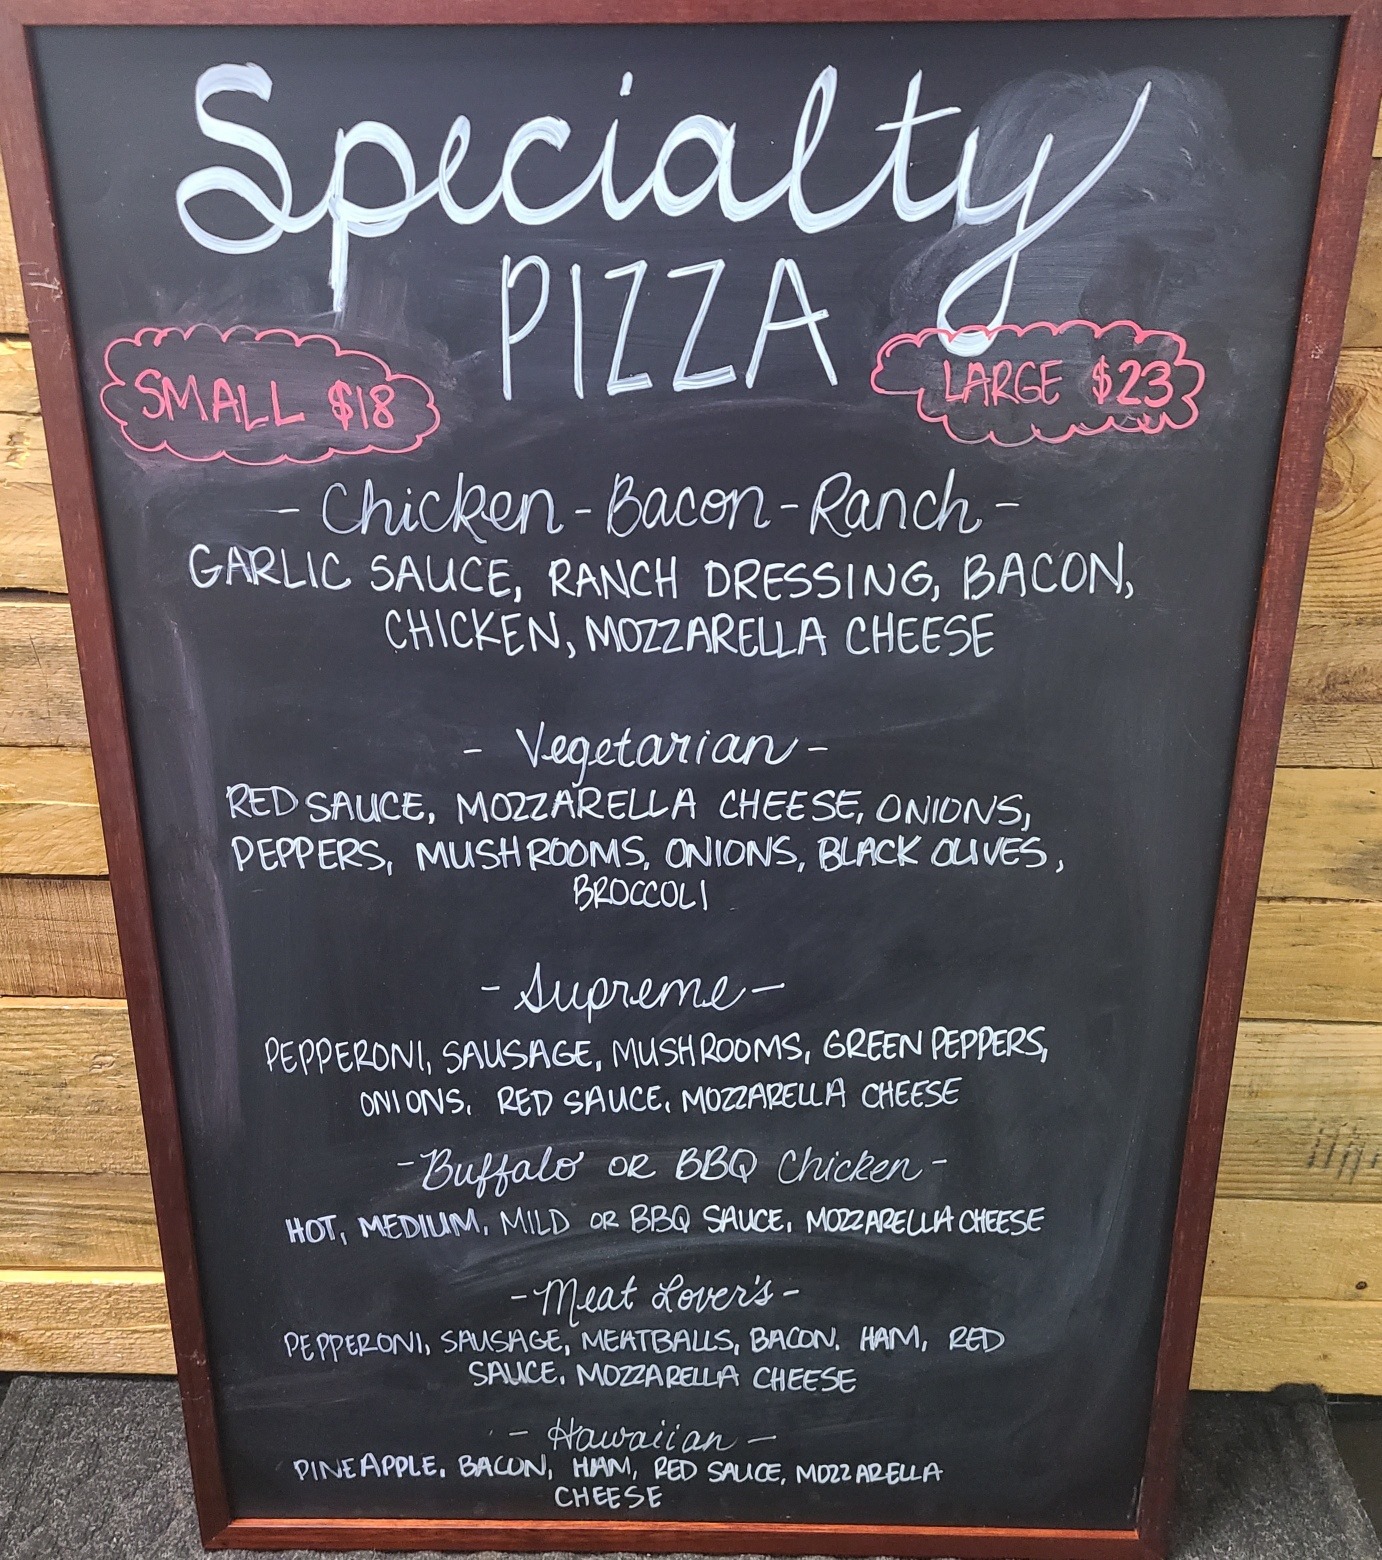 Specialty
PIZZA
SMALL $18
LARGE $23
- Chicken - Bacon - Ranch -
GARLIC SAUCE, RANCH DRESSING, BACON,
CHICKEN, MOZZARELLA CHEESE
- Vegetarian -
RED SAUCE, MOZZARELLA CHEESE, ONIONS,
PEPPERS, MUSHROOMS, ONIONS, BLACK OLIVES,
BROCCOLI
- Supreme -
PEPPERONI, SAUSAGE, MUSHROOMS, GREEN PEPPERS,
ONIONS, RED SAUCE, MOZZARELLA CHEESE
- Buffalo OR BBQ Chicken -
HOT, MEDIUM, MILD OR BBQ SAUCE, MOZZARELLA CHEESE
- Meat Lover's -
PEPPERONI, SAUSAGE, MEATBALLS, BACON. HAM, RED
SAUCE, MOZZARELLA CHEESE
- Hawaiian -
PINEAPPLE, BACON, HAM, RED SAUCE, MOZZARELLA
CHEESE